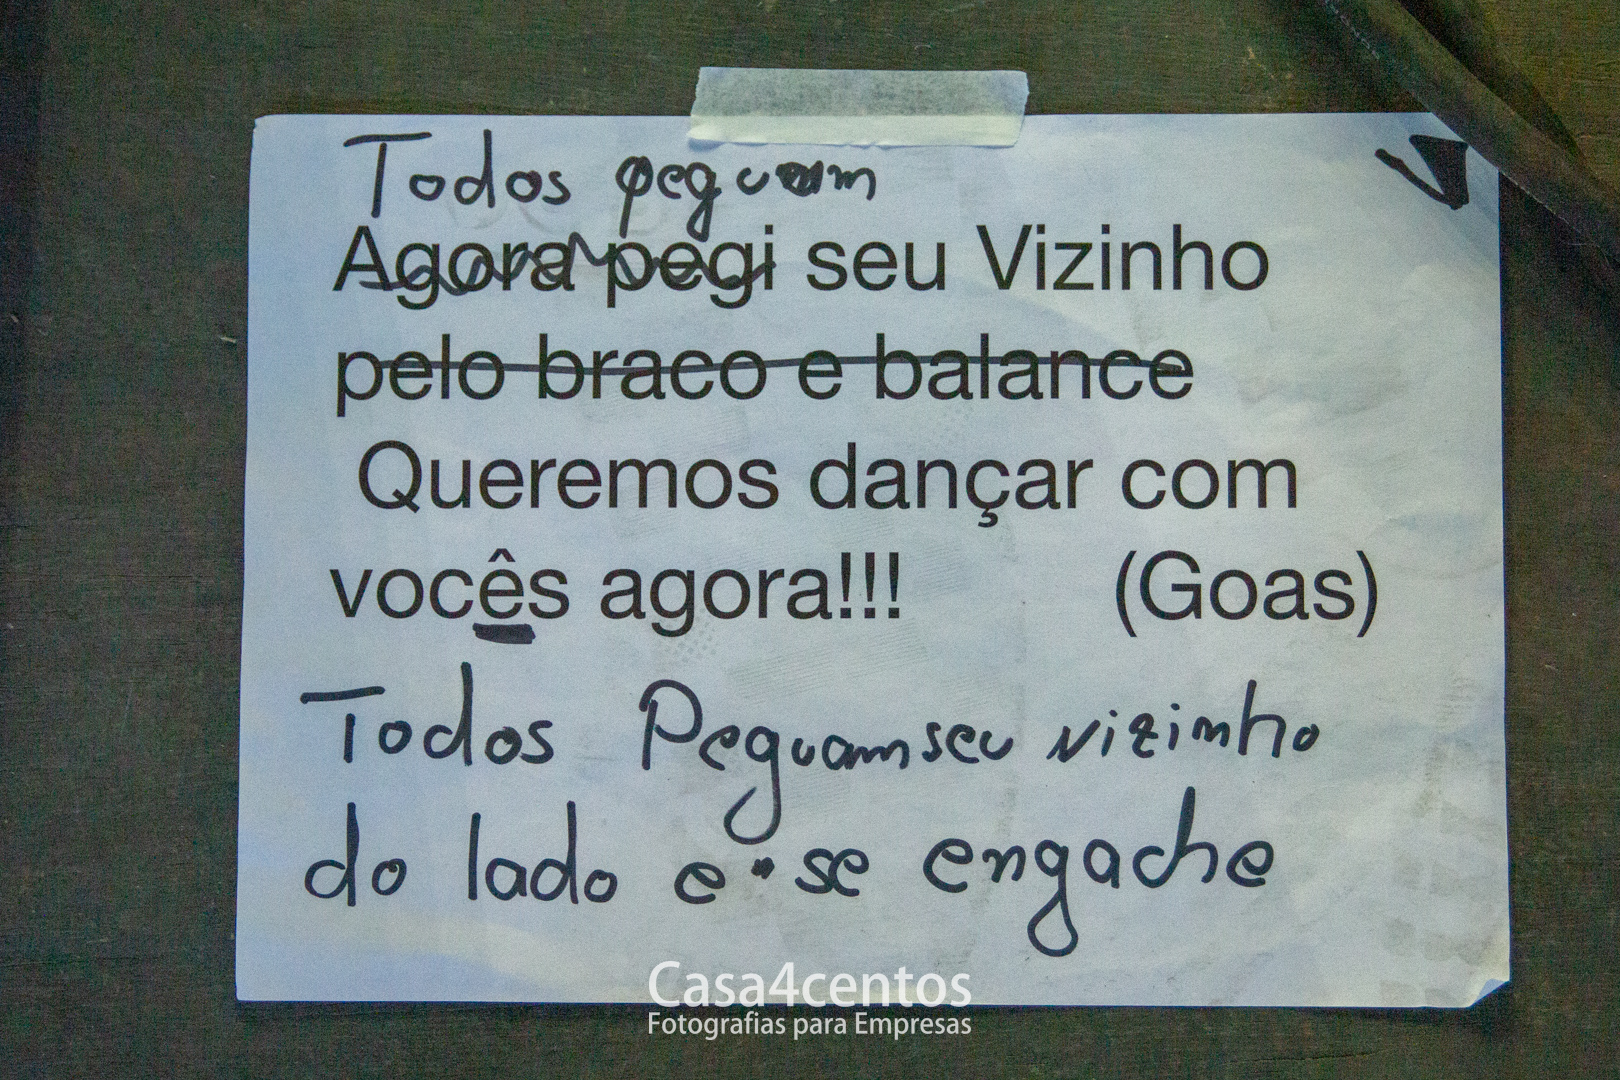 Todos peguam
Agora pegi seu Vizinho
pelo braco e balance
Queremos dançar com
vocês agora!!! (Goas)
Todos Peguam seu vizinho
do lado e se engache
Casa4centos
Fotografias para Empresas